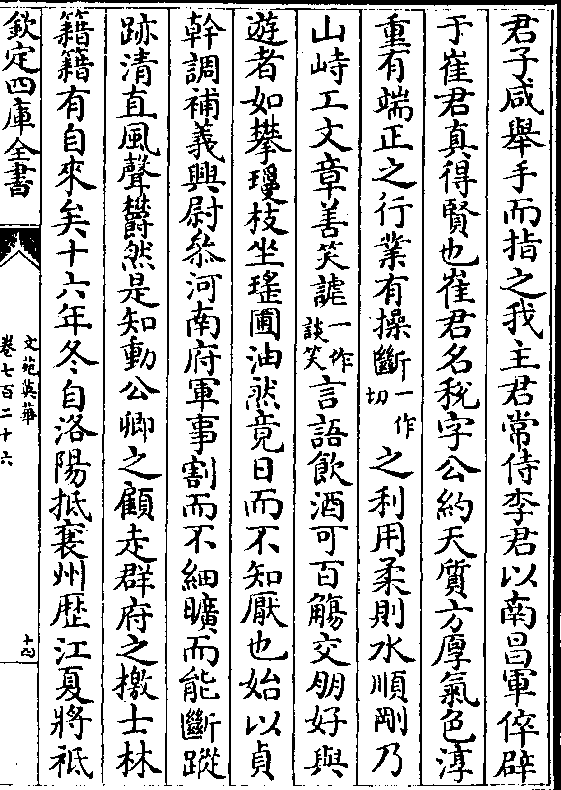 君子咸舉手而指之我主君常侍李君以南昌軍倅辟
于崔君真得賢也崔君名稅字公約天質方厚氣色淳
重有端正之行業有操斷一作切之利用柔則水順剛乃
山峙工文章善笑謔一作談笑言語飲酒可百觴交朋好與
遊者如攀瓊枝坐瑤圃油然竟日而不知厭也始以貞
幹調補義興尉叅河南府軍事割而不細曠而能斷蹤
跡清直風聲欝然是知動公卿之顧走群府之檄士林
籍籍有自來矣十六年冬自洛陽抵襄州歴江夏將祗
欽定四庫全書
文苑英華
卷七百二十六
十四